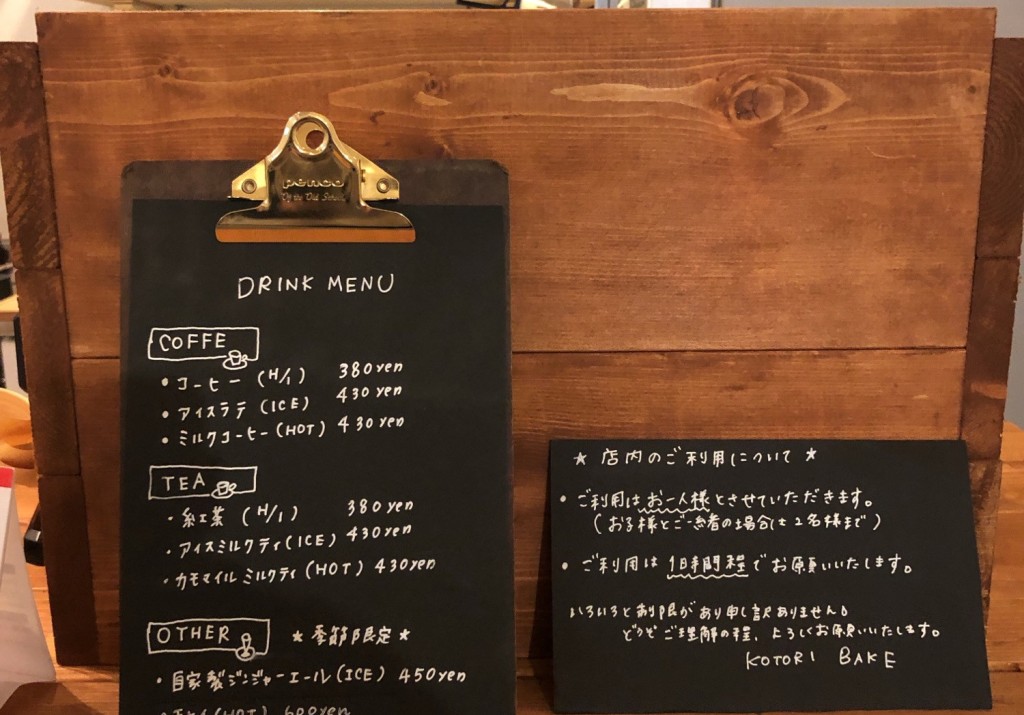 penco
DRINK MENU
COFFE
・コーヒー (H/I) 380yen
・アイスラテ (ICE) 430yen
・ミルクコーヒー(HOT) 430yen
TEA
・紅茶 (H/I) 380yen
・アイスミルクティ(ICE) 430yen
・カモマイルミルクティ(HOT) 430yen
OTHER ★季節限定★
・自家製ジンジャーエール(ICE) 450yen
(HOT) 600yen
★ 店内のご利用について ★
・ご利用はお一人様とさせていただきます。
(お子様とご一緒の場合は2名様まで)
・ご利用は1時間程でお願いいたします。
いろいろと制限があり申し訳ありません。
どうぞご理解の程、よろしくお願いいたします。
KOTORI BAKE